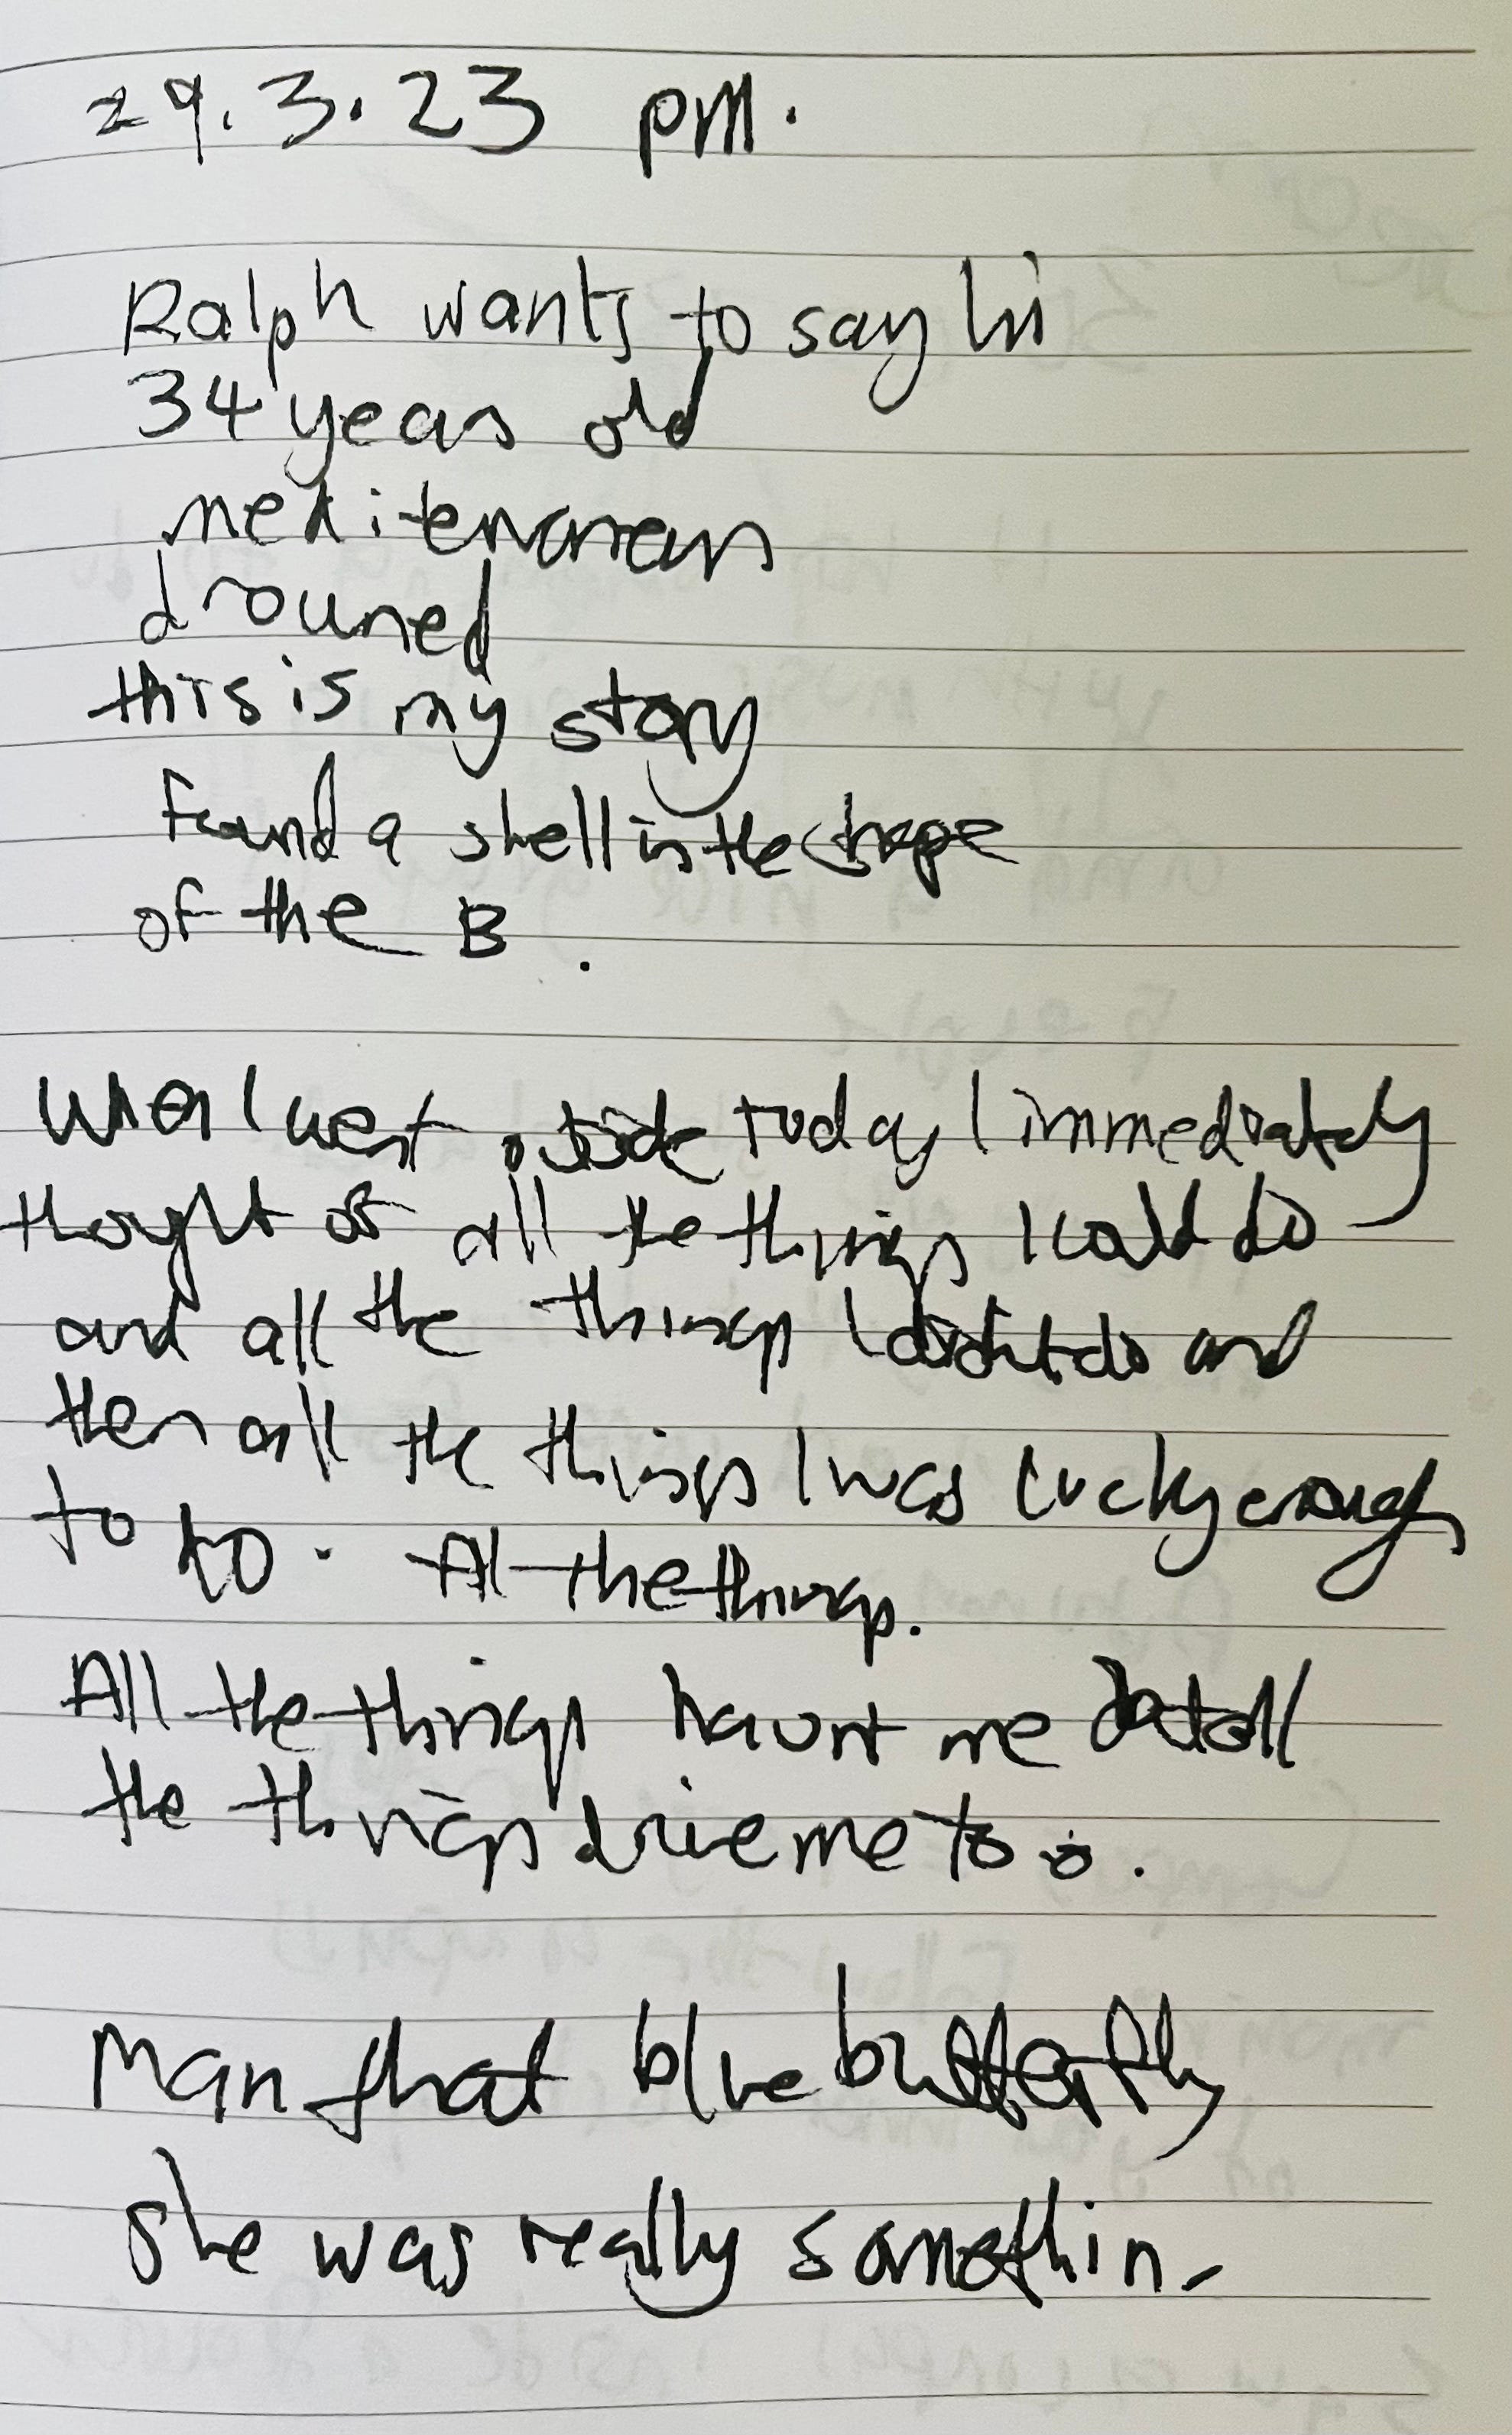 29.3.23 pm.
Ralph wants to say hi
34 years old
mediterranean
drouned
this is my story
Found a shell in the shape
of the B.
When I went outside today I immediately
thought of all the things I could do
and all the things I didnt do and
then all the things I was lucky enough
to to. All the things.
All the things haunt me but all
the things drive me too.
Man that blue butterfly
she was really somethin-